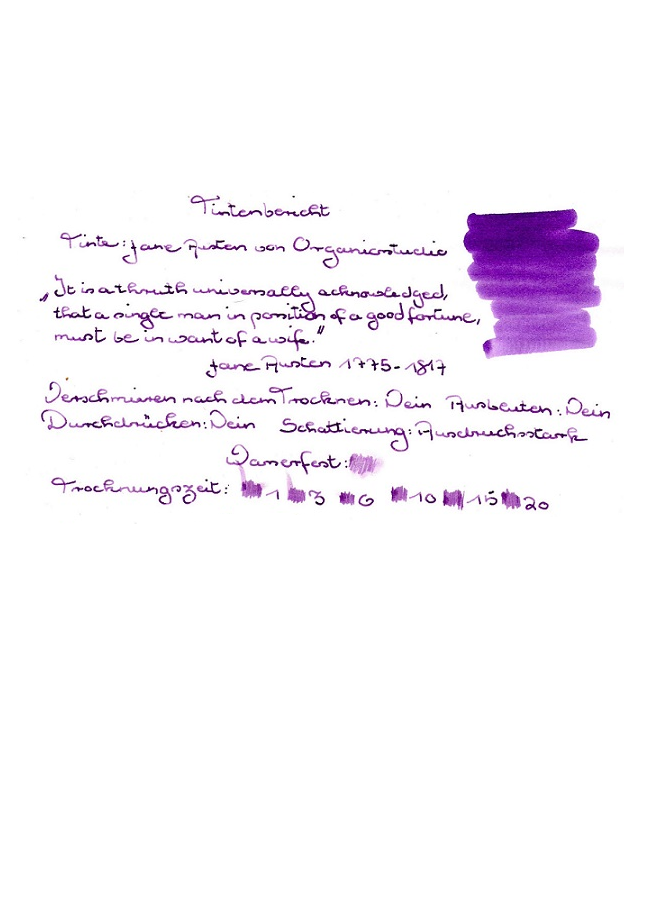 Tintenbericht
Tinte: Jane Austen von Organicstudio
„It is a thruth universally acknowledged,
that a single man in position of a good fortune,
must be in want of a wife."
Jane Austen 1775-1817
Verschmieren nach dem Trocknen: Nein Ausbluten: Nein
Durchdrücken: Nein Schattierung: Ausdrucksstark
Wasserfest:
Trocknungszeit: 1 3 6 10 15 20